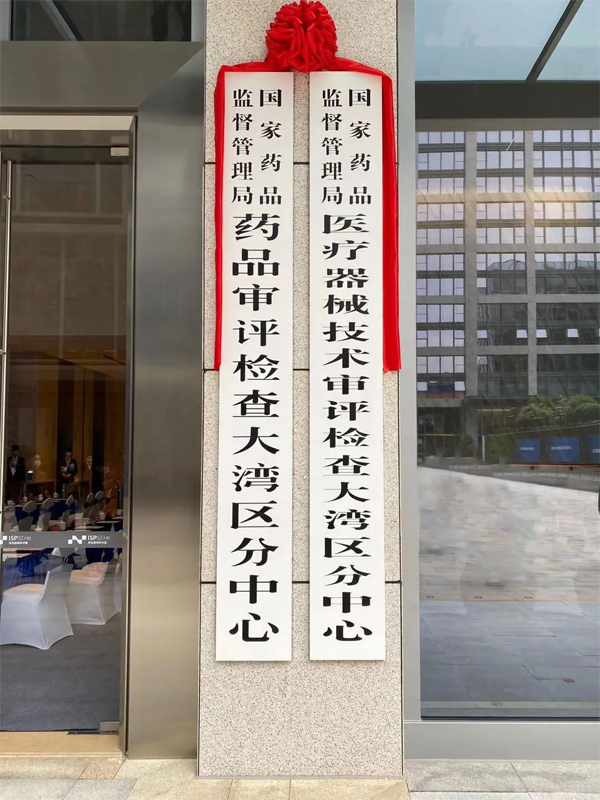 国家药品
监督管理局
医疗器械技术审评检查大湾区分中心
国家药品
监督管理局
药品审评检查大湾区分中心
ISPSZ·HK
ISPSZ·HK